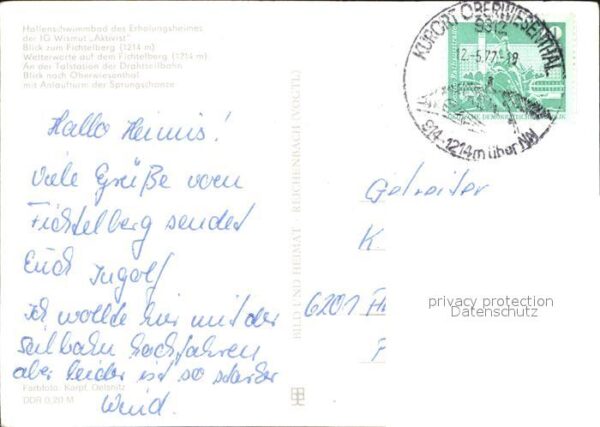 Hallenschwimmbad des Erholungsheimes
der IG Wismut „Aktivist"
Blick zum Fichtelberg (1214 m)
Wetterwarte auf dem Fichtelberg (1214 m)
An der Talstation der Drahtseilbahn
Blick nach Oberwiesenthal
mit Anlaufturm der Sprungschanze
Hallo Heimis!
Viele Grüße vom
Fichtelberg sendet
Euch Ingolf
Ich wollte hier mit der
Seilbahn hochfahren
aber leider ist so starker
Wind.
Farbfoto: Karpf, Oelsnitz
DDR 0,20 M
BILD UND HEIMAT REICHENBACH (VOGTL)
KURORT OBERWIESENTHAL
914-1214m über NN
Getreiter
K.
6201
privacy protection
Datenschutz